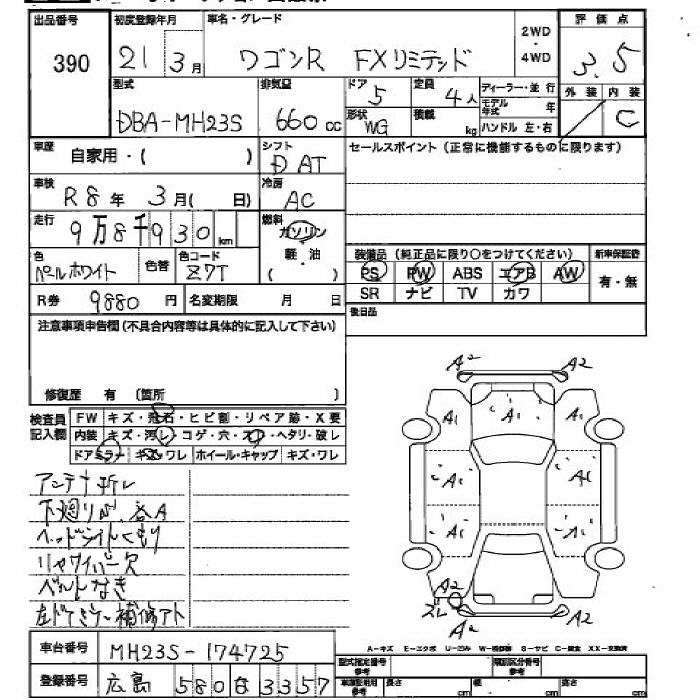 出品番号 初度登録年月 車名・グレード 2WD・4WD 評価点
390 21 3月 ワゴンR FXリミテッド 3.5
型式 排気量 ドア 定員 ディーラー・並行 外装 内装
DBA-MH23S 660cc 5 4人 モデル年式 年 C
形状 WG 積載 kg ハンドル 左・右
車歴 自家用・( ) シフト D AT セールスポイント(正常に機能するものに限ります)
車検 R8年 3月( 日) 冷房 AC
走行 9万8千930km 燃料 ガソリン
軽・油
( )
色 パールホワイト 色替 色コード Z7T
装備品(純正品に限り〇をつけてください) 新車保証書
PS PW ABS エアB AW 有・無
SR ナビ TV カワ
R券 9880円 名変期限 月 日 後日品
注意事項申告欄(不具合内容等は具体的に記入して下さい)
修復歴 有 〔箇所 〕
検査員記入欄 FW キズ・飛石・ヒビ割・リペア跡・X要
内装 キズ・汚レ・コゲ・穴・スレ・ヘタリ・破レ
ドアミラー キズ・ワレ ホイール・キャップ キズ・ワレ
アンテナ折レ
下廻りサビ、各A
ヘッドライトくもり
リヤワイパー欠
左ドアミラー補修アト
A2 A2
A1 A1 A1
A1 A1
A1 A1
A2
ズレ
A2 A2
車台番号 MH23S-174725
登録番号 広島 580 な 3357
A-キズ E-エクボ U-凹み W-補修跡 S-サビ C-腐食 XX-交換済
型式指定番号 参考 類別区分番号 参考
車庫証明用 参考 長さ cm 幅 cm 高さ cm